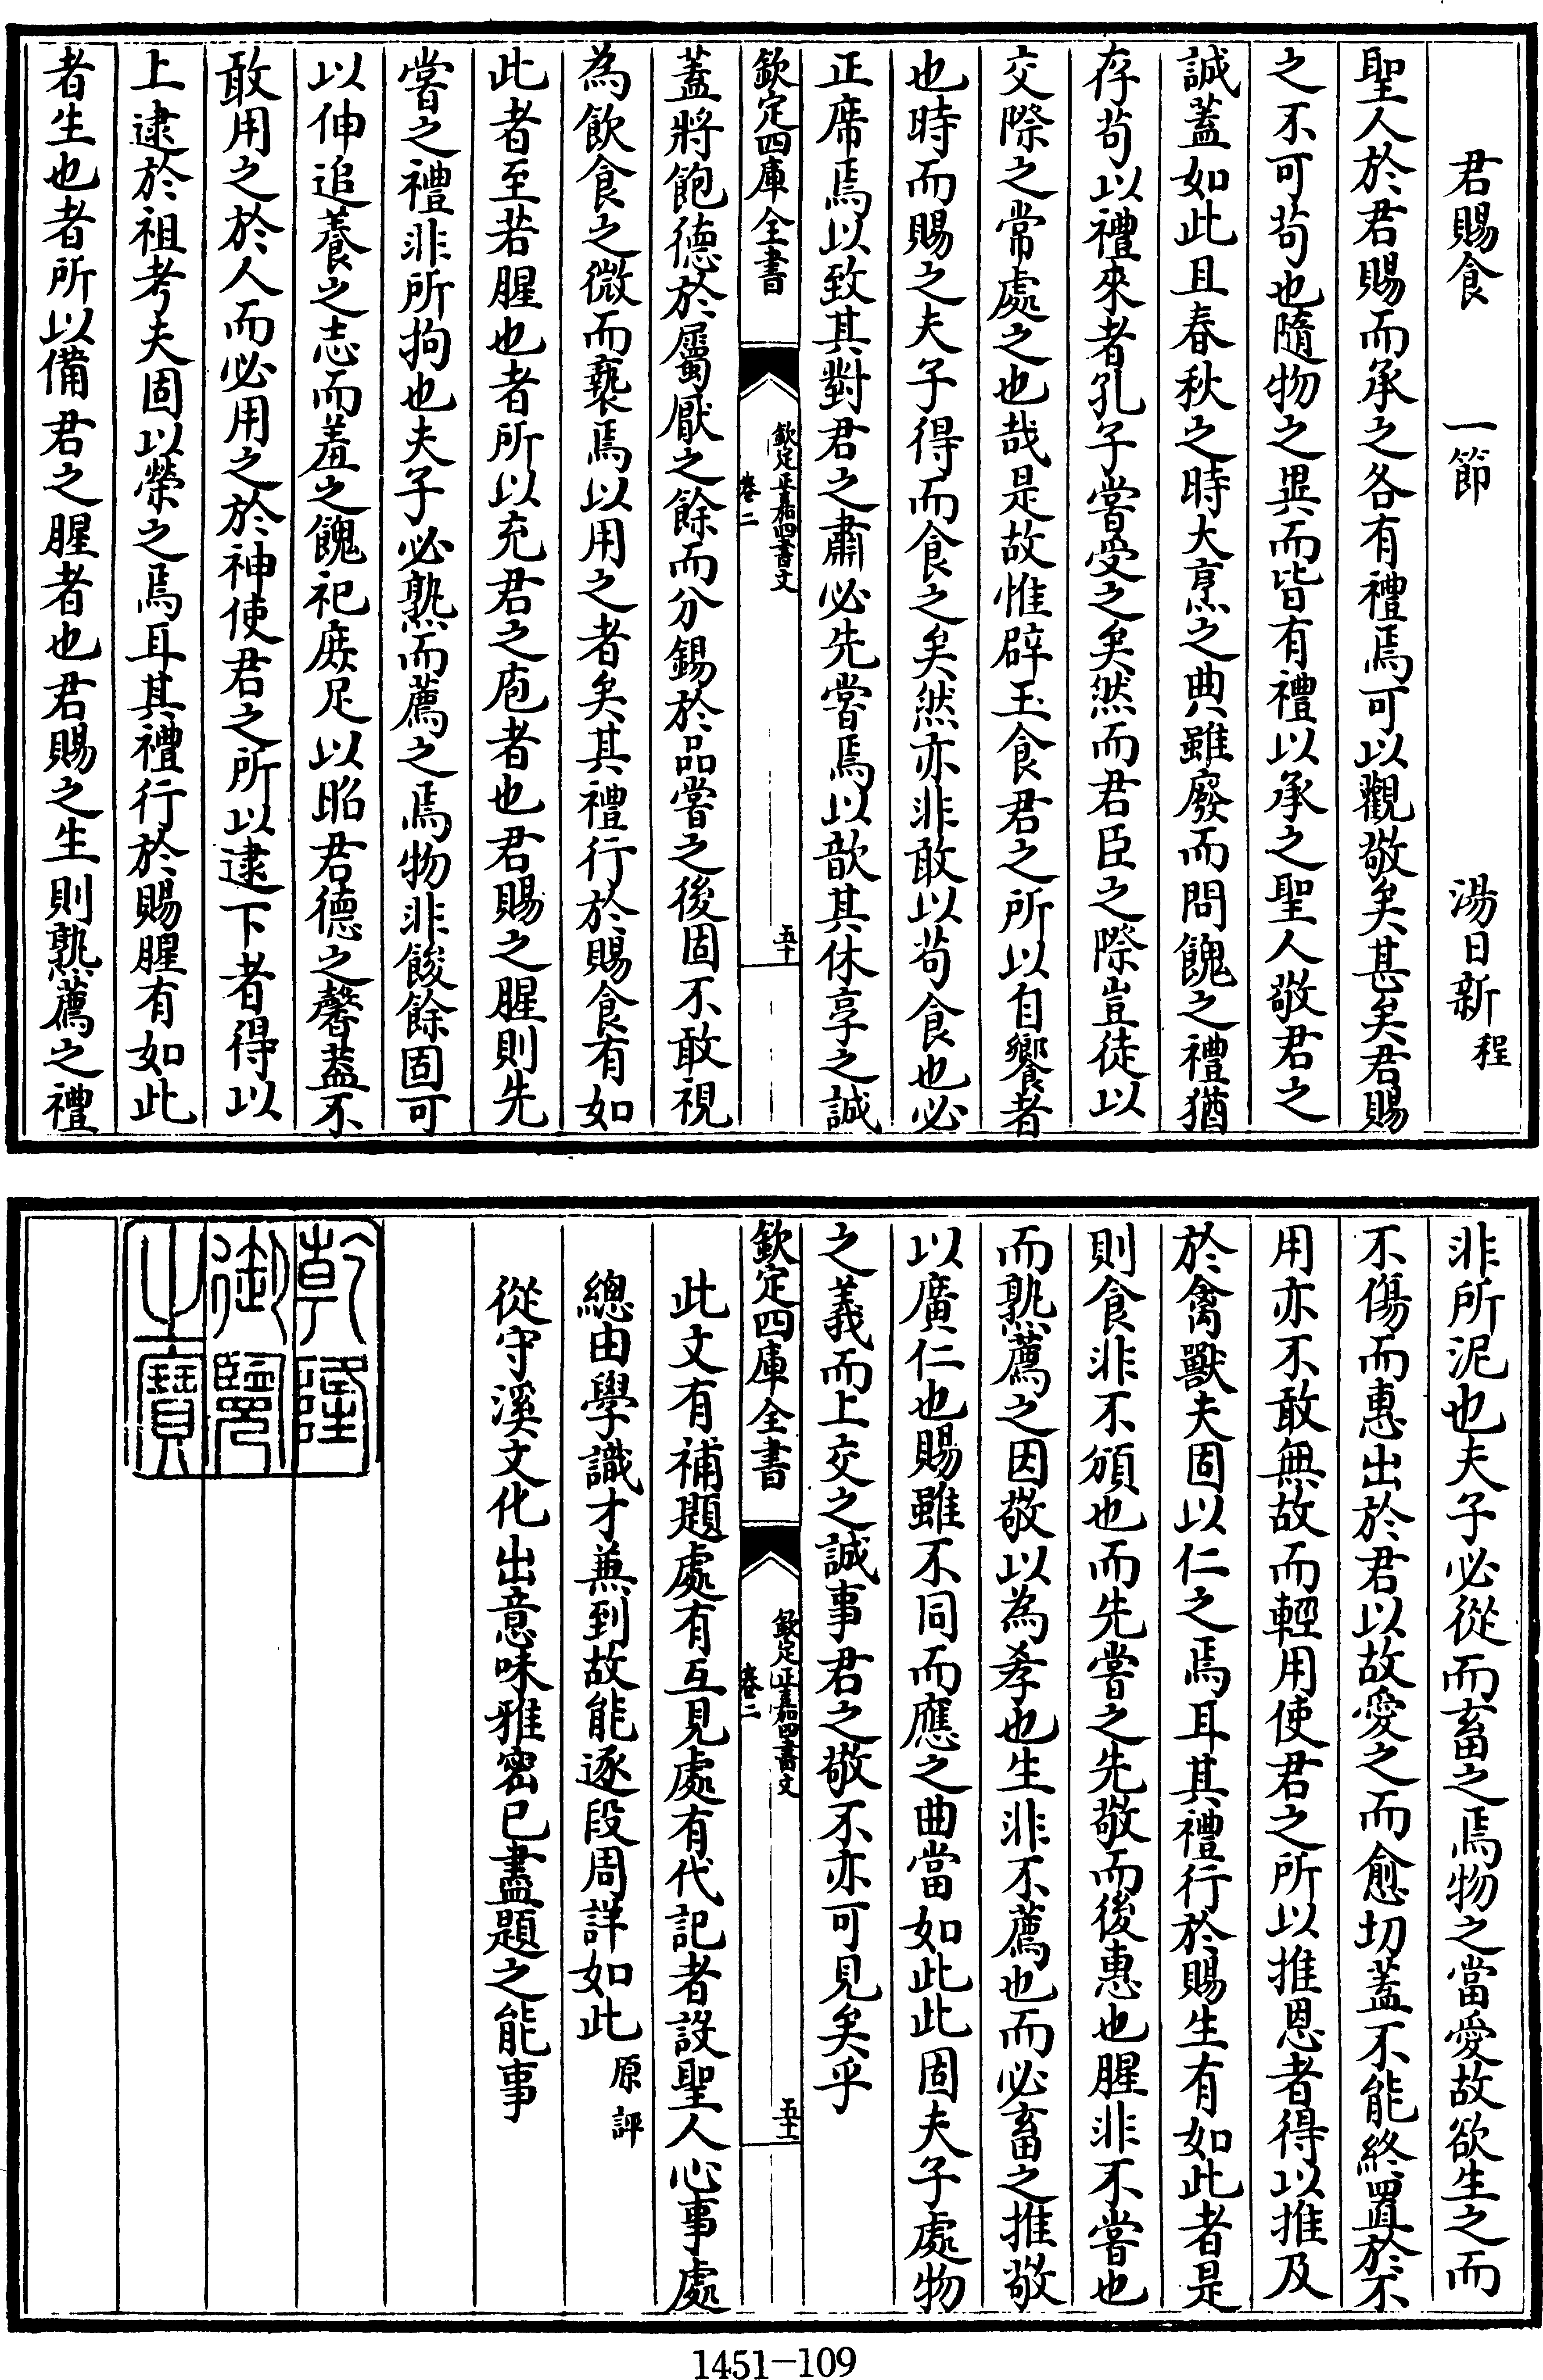 君賜食　一節　湯日新程
聖人於君賜而承之各有禮焉可以觀敬矣甚矣君賜
之不可苟也隨物之異而皆有禮以承之聖人敬君之
誠蓋如此且春秋之時大烹之典雖廢而問餽之禮猶
存苟以禮來者孔子嘗受之矣然而君臣之際豈徒以
交際之常處之也哉是故惟辟玉食君之所以自饗者
也時而賜之夫子得而食之矣然亦非敢以苟食也必
正席焉以致其對君之肅必先嘗焉以歆其休享之誠
欽定四庫全書
欽定正嘉四書文
卷二
五十
蓋將飽德於屬厭之餘而分錫於品嘗之後固不敢視
為飲食之微而褻焉以用之者矣其禮行於賜食有如
此者至若腥也者所以充君之庖者也君賜之腥則先
嘗之禮非所拘也夫子必熟而薦之焉物非餕餘固可
以伸追養之志而羞之餽祀庶足以昭君德之馨蓋不
敢用之於人而必用之於神使君之所以逮下者得以
上逮於祖考夫固以榮之焉耳其禮行於賜腥有如此
者生也者所以備君之腥者也君賜之生則熟薦之禮
非所泥也夫子必從而畜之焉物之當愛故欲生之而
不傷而惠出於君以故愛之而愈切蓋不能終置於不
用亦不敢無故而輕用使君之所以推恩者得以推及
於禽獸夫固以仁之焉耳其禮行於賜生有如此者是
則食非不頒也而先嘗之先敬而後惠也腥非不嘗也
而熟薦之因敬以為孝也生非不薦也而必畜之推敬
以廣仁也賜雖不同而應之曲當如此此固夫子處物
之義而上交之誠事君之敬不亦可見矣乎
欽定四庫全書
欽定正嘉四書文
卷二
五十一
此文有補題處有互見處有代記者設聖人心事處
總由學識才兼到故能逐段周詳如此原評
從守溪文化出意味雅密已盡題之能事
乾隆
御覽
之寶
1451-109